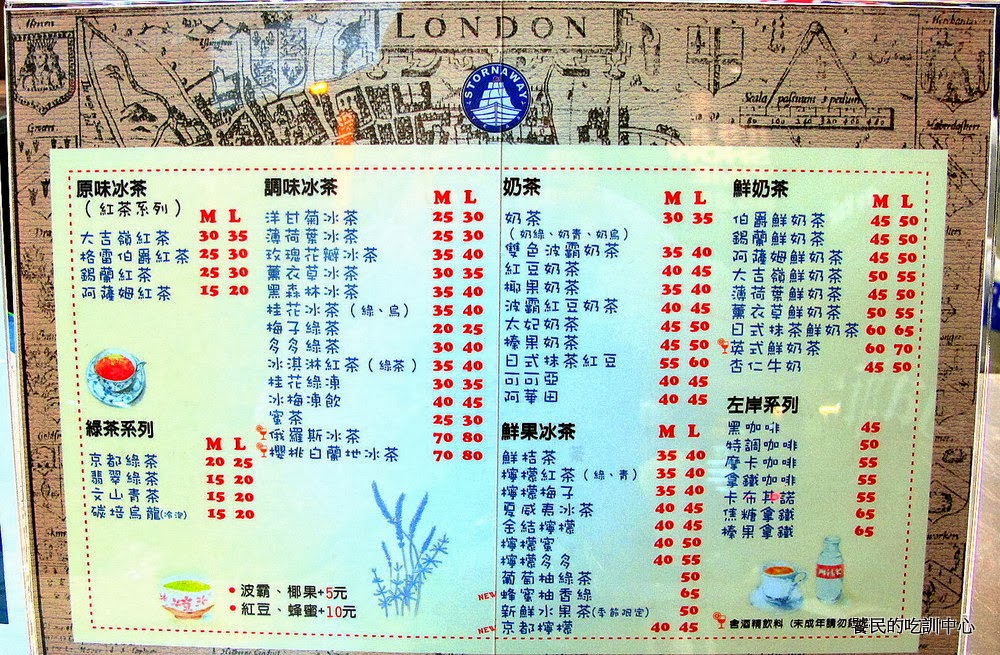 LONDON
STORNAWAY
Scala passuum 5 pedum
原味冰茶
(紅茶系列)
M L
大吉嶺紅茶 30 35
格雷伯爵紅茶 25 30
錫蘭紅茶 25 30
阿薩姆紅茶 15 20
綠茶系列
M L
京都綠茶 20 25
翡翠綠茶 15 20
文山青茶 15 20
碳培烏龍(冷泡) 15 20
• 波霸、椰果+5元
• 紅豆、蜂蜜+10元
調味冰茶
M L
洋甘菊冰茶 25 30
薄荷葉冰茶 25 30
玫瑰花瓣冰茶 35 40
薰衣草冰茶 30 35
黑森林冰茶 35 40
桂花冰茶(綠、烏) 35 40
梅子綠茶 20 25
多多綠茶 30 40
冰淇淋紅茶(綠茶) 35 40
桂花綠凍 30 35
冰梅凍飲 40 45
蜜茶 25 30
俄羅斯冰茶 70 80
櫻桃白蘭地冰茶 70 80
奶茶
M L
奶茶 30 35
(奶綠、奶青、奶烏)
雙色波霸奶茶 35 40
紅豆奶茶 40 45
椰果奶茶 35 40
波霸紅豆奶茶 40 45
太妃奶茶 45 50
榛果奶茶 45 50
日式抹茶紅豆 55 60
可可亞 40 45
阿華田 40 45
鮮果冰茶
M L
鮮桔茶 35 40
檸檬紅茶(綠、青) 35 40
檸檬梅子 35 40
夏威夷冰茶 40 45
金結檸檬 40 45
檸檬蜜 40 50
檸檬多多 40 55
葡萄柚綠茶 50
NEW 蜂蜜柚香綠 65
新鮮水果茶(季節限定) 50
NEW 京都檸檬 40 45
鮮奶茶
M L
伯爵鮮奶茶 45 50
錫蘭鮮奶茶 45 50
阿薩姆鮮奶茶 45 50
大吉嶺鮮奶茶 50 55
薄荷葉鮮奶茶 45 50
薰衣草鮮奶茶 50 55
日式抹茶鮮奶茶 60 65
英式鮮奶茶 60 70
杏仁牛奶 45 50
左岸系列
黑咖啡 45
特調咖啡 50
摩卡咖啡 55
拿鐵咖啡 55
卡布其諾 55
焦糖拿鐵 65
榛果拿鐵 65
MILK
含酒精飲料(未成年請勿
饕民的吃訓中心